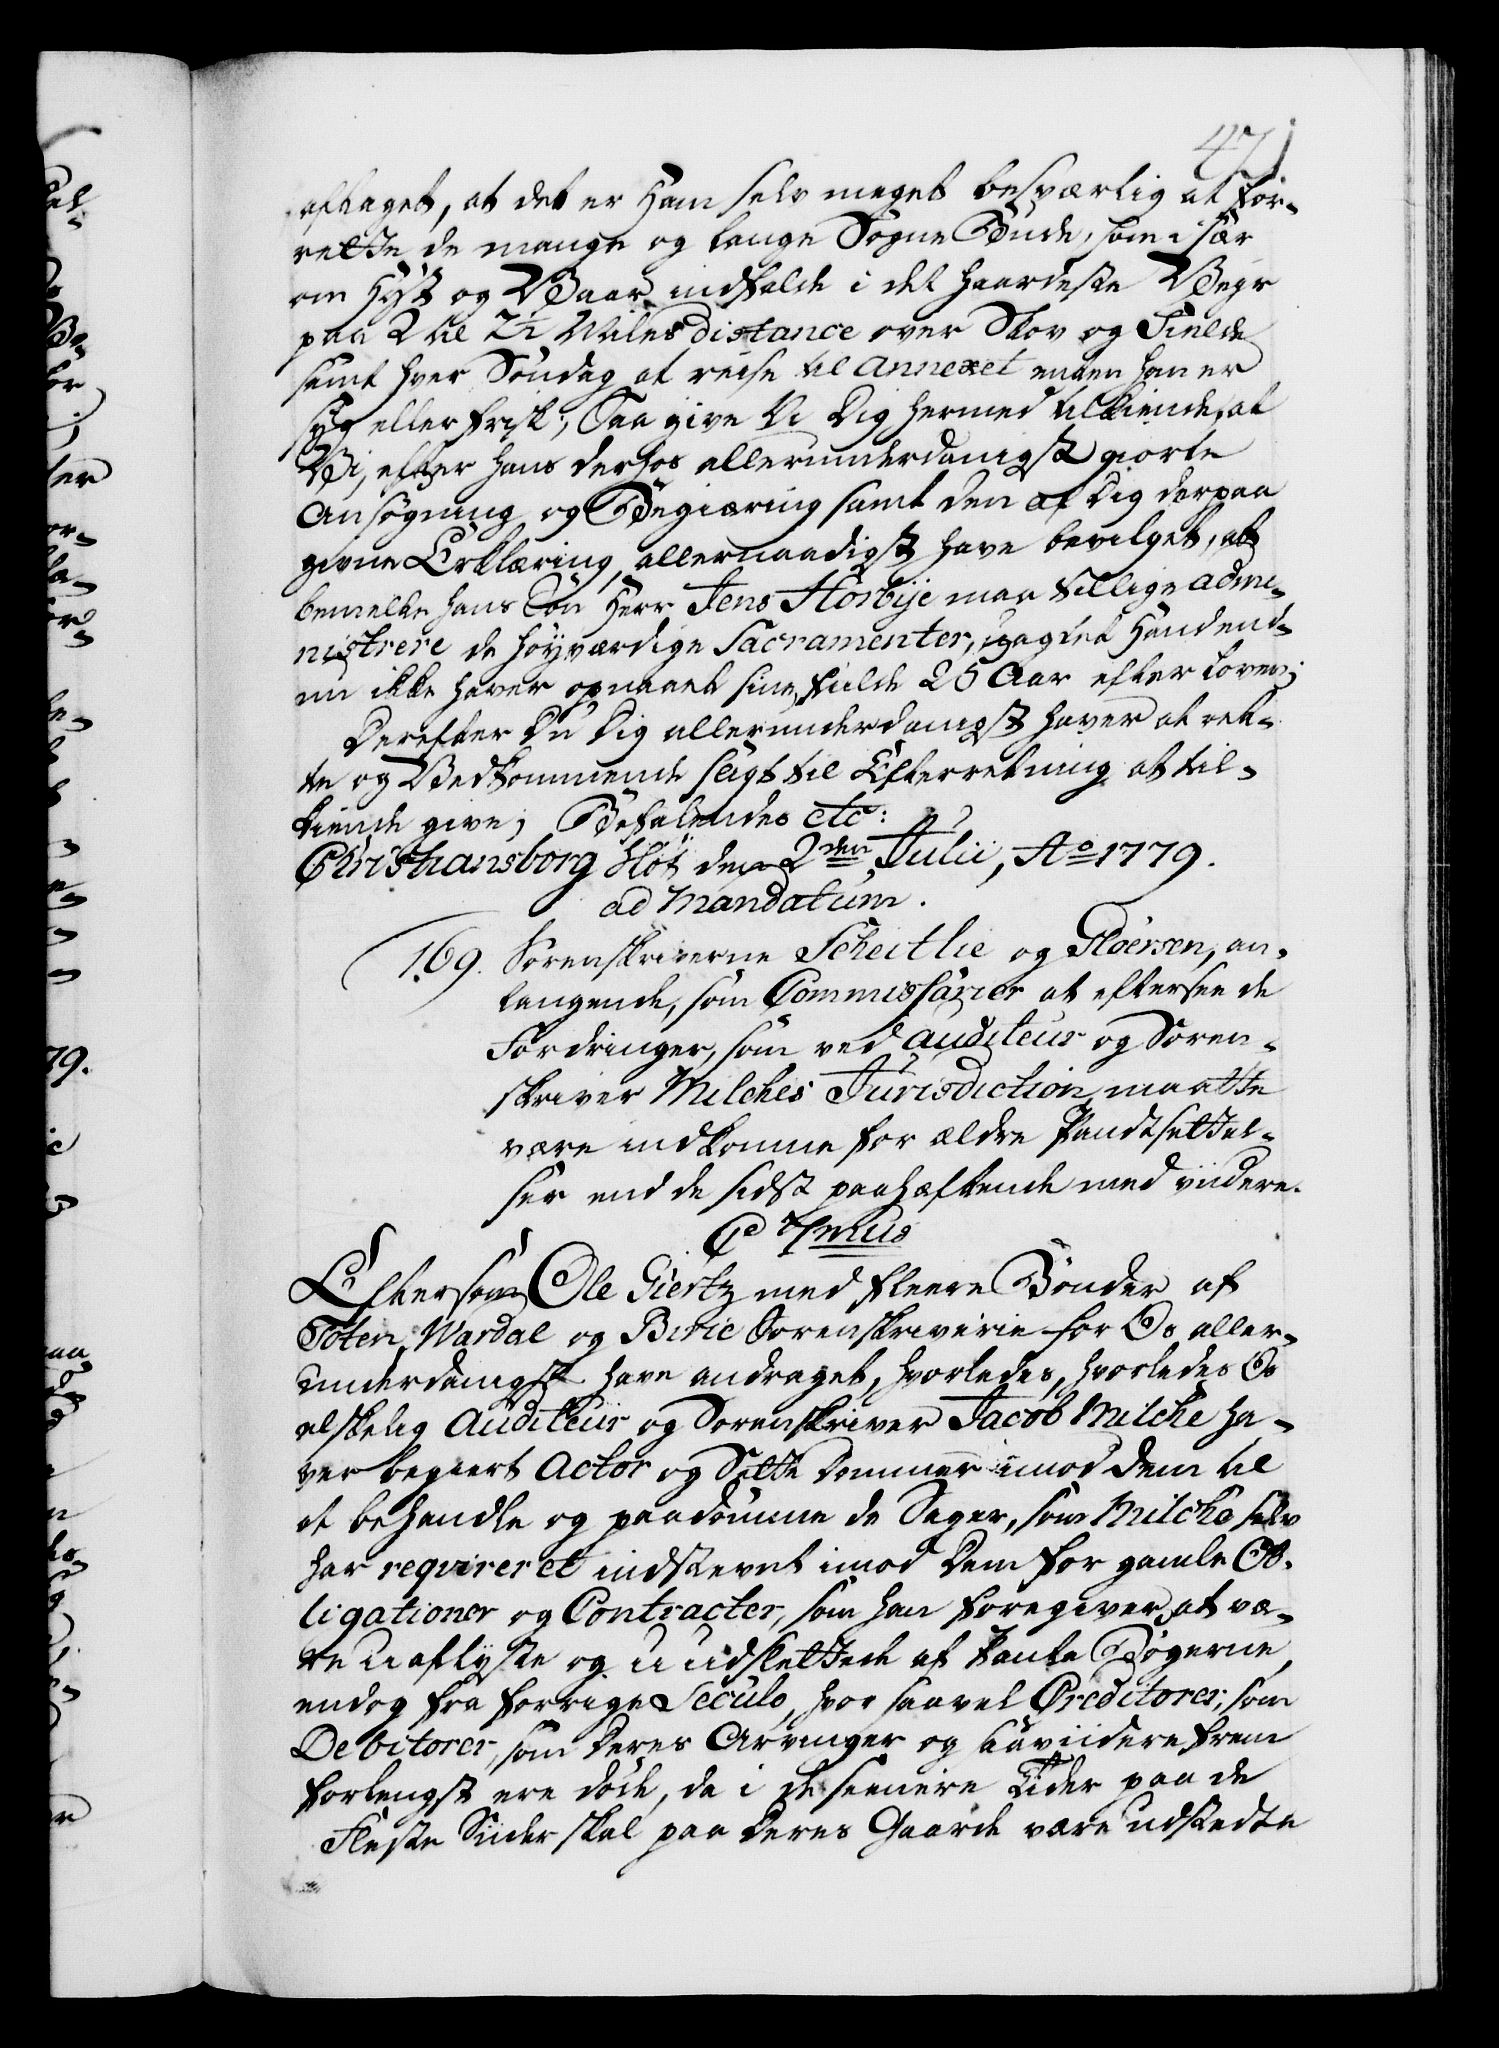 471
aftaget, at det er Ham selv meget besværlig at for-
rette de mange og lange Sogne Bude, som især
om Høst og Vaar indfalde i det haardeste Vejr
paa 2 til 2½ Miles distance over Skov og Fielde
samt hver Søndag at reise til Annexet enten han er
syg eller frisk; Saa give Vi Dig hermed tilkiende, at
Vi, efter hans derhos allerunderdanigst giorte
Ansøgning og Begiæring samt den af Dig derpaa
givne Erklæring, allernaadigst have bevilget, at
bemelte hans Søn Herr Jens Hørbye maa tillige admi-
nistrere de høyværdige Sacramenter, uagtet Hand end-
nu ikke haver opnaaet sine fulde 25 Aar efter Loven;
Derefter Du Dig allerunderdanigst haver at ret-
te og Vedkommende sligt til Efterretning at til-
kiende give; Befalendes etc:
Christiansborg Slot den 2den Julii, Ao 1779.
ad Mandatum.
169. Sorenskriverne Scheitlie og Fløersen, an-
langende, som Commissarier at eftersee de
Fordringer, som ved Auditeur og Soren-
skriver Milches Jurisdiction maatte
være indkomne for ældre Pandtsettel-
ser end de sidst paahæftende med viidere.
C 7mus
Eftersom Ole Giertz med fleere Bønder af
Toten, Wardal og Birie Sorenskriverie for Os aller-
underdanigst have andraget, hvorledes, hvorledes Os
elskelig Auditeur og Sorenskriver Jacob Milche ha-
ver begiert Actor og Sette Dommer imod dem til
at behandle og paadømme de Sager, som Milche selv
har requireret indstevnt imod Dem for gamle Ob-
ligationer og Contracter, som han foregiver at væ-
re uaflyste og uudslettede af Pante Bøgerne,
endog fra forrige Seculo, hvor saavel Creditorer, som
Debitorer, som deres Arvinger og saaviidere frem
forlengst ere døde, da i de seenere Tider paa de
Fleste Stæder skal paa deres Gaarde være udstedte